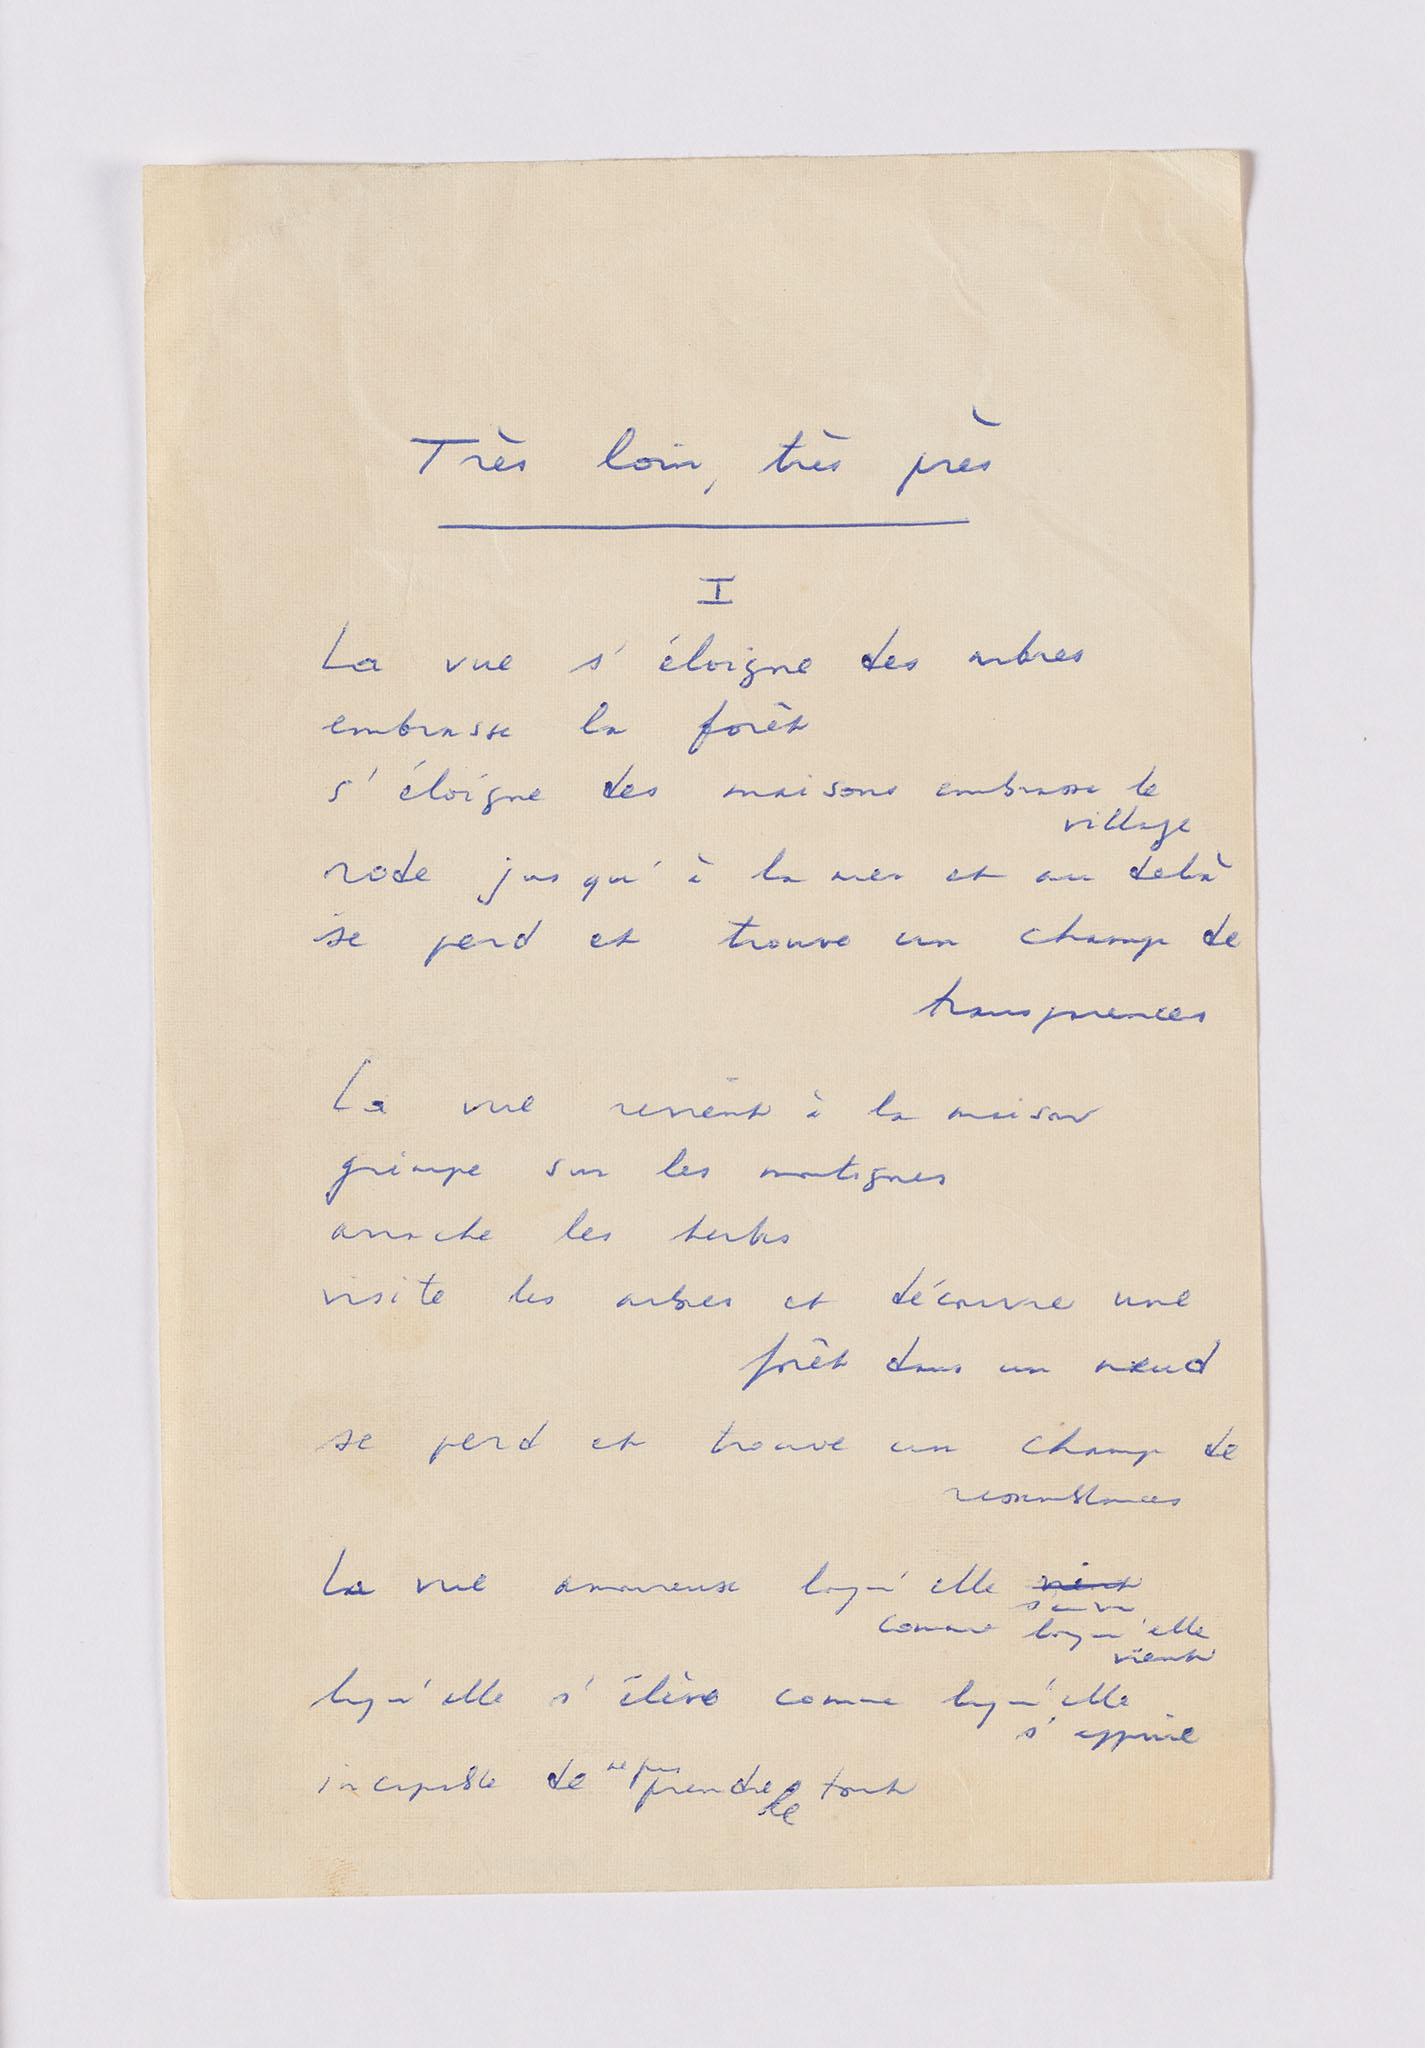 Très loin, très près
I
La vue s'éloigne des arbres
embrasse la forêt
s'éloigne des maisons embrasse le
village
rode jusqu'à la mer et au delà
se perd et trouve un champ de
transparences
La vue revient à la maison
grimpe sur les montagnes
arrache les herbes
visite les arbres et découvre une
forêt dans un nœud
se perd et trouve un champ de
ressemblances
La vue amoureuse lorsqu'elle vient
comme lorsqu'elle
vient
lorsqu'elle s'élève comme lorsqu'elle
s'appuie
incapable de ne pas prendre le tout